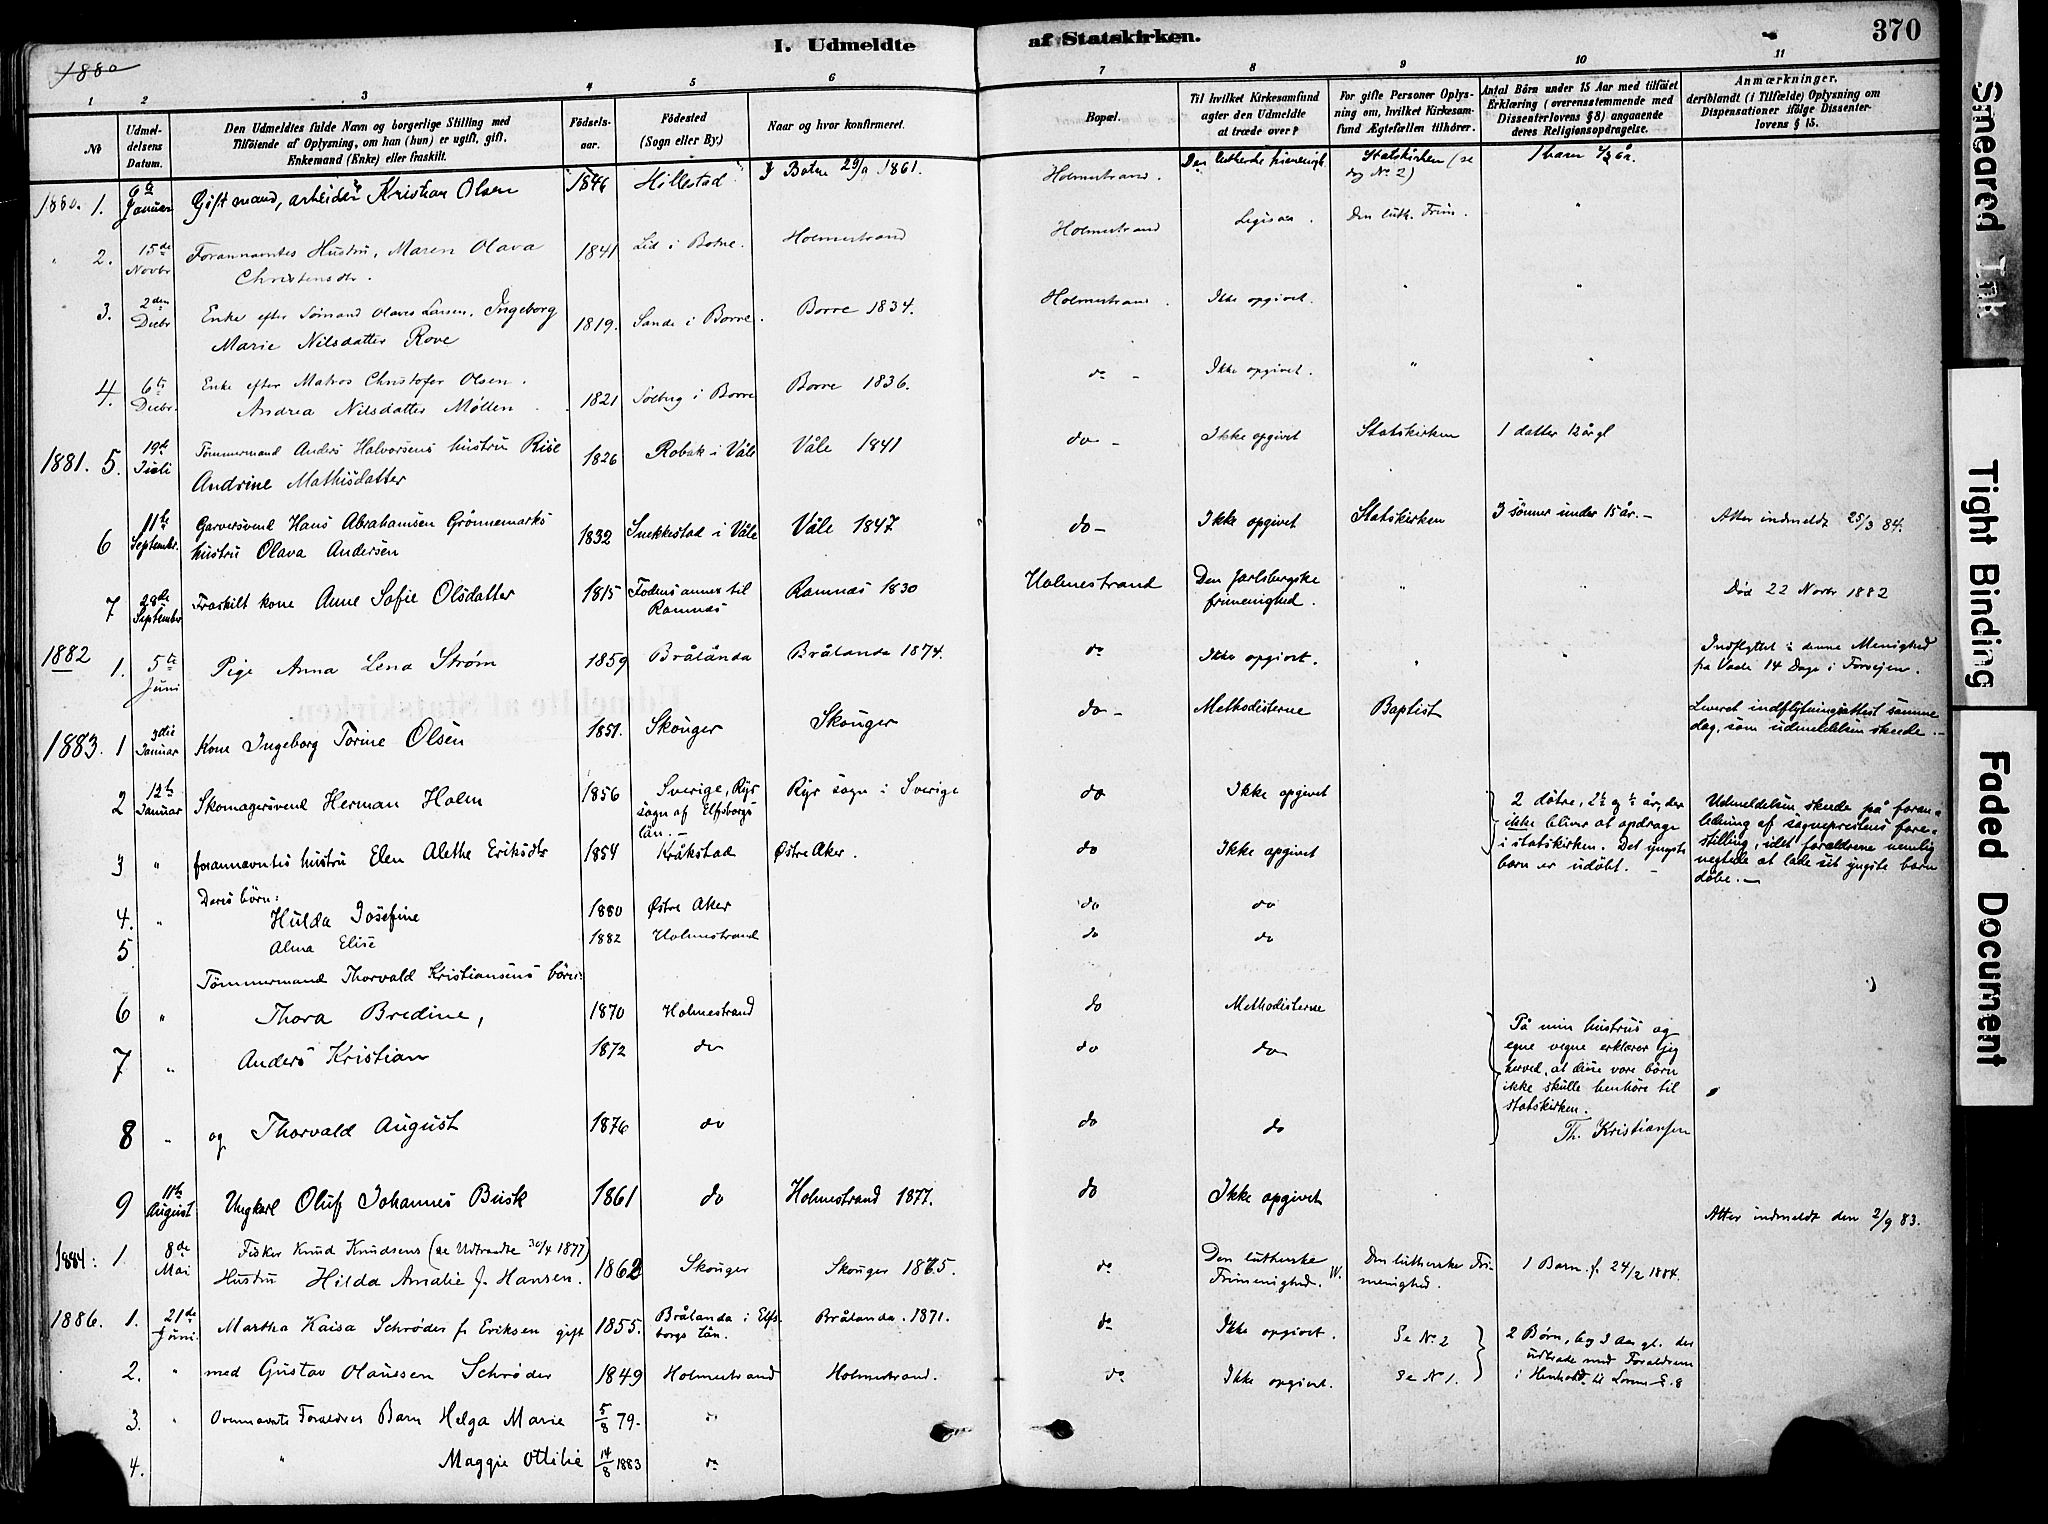 I. Udmeldte af Statskirken. 370
1880
1 2 3 4 5 6 7 8 9 10 11
No
Udmeldelsens Datum.
Den Udmeldtes fulde Navn og borgerlige Stilling med
Tilföiende af Oplysning, om han (hun) er ugift, gift,
Enkemand (Enke) eller fraskilt.
Födselsaar.
Födested
(Sogn eller By.)
Naar og hvor konfirmeret.
Bopæl.
Til hvilket Kirkesamfund
agter den Udmeldte
at træde over?
For gifte Personer Oplysning om, hvilket Kirkesamfund Ægtefællen tilhörer.
Antal Börn under 15 Aar med tilföiet
Erklæring (overensstemmende med
Dissenterlovens §8) angaaende
deres Religionsopdragelse.
Anmærkninger,
deriblandt (i Tilfælde) Oplysning om
Dispensationer ifölge Dissenterlovens § 15.
1880. 1. 6te Januar Gift mand, arbeider Kristian Olsen 1846 Hillestad I Botne 29/9 1861. Holmestrand. Den lutherske frimenigh. Statskirken (se dog No 2) 1 barn 1/2 år.
2. 15de Novbr Forannævntes Hustru, Maren Olava
Christensdtr. 1841 Lid i Botne. Holmestrand Holmestrand Ligesaa. Den luth. Frim. "
3. 2den Decbr Enke efter Sömand Olaves Larsen, Ingeborg
Marie Nilsdatter Rove 1819. Sande i Borre. Borre 1834. Holmestrand. Ikke opgivet. " "
4. 6te Decbr. Enke efter Matros Christofer Olsen.
Andrea Nilsdatter Möllen 1821 Solberg i Borre Borre 1836. do - Ikke opgivet. " "
1881. 5. 19de Juli Tömmermand Anders Halvorsens hustru Rise
Andrine Mathisdatter 1826 Robak i Våle Våle 1841 do - Ikke opgivet Statskirken 1 datter 12 år gl
6 11te September. Garversvend Hans Abrahamsen Grönnemarks
hustru Olava Andersen 1832 Snekkestad i Våle Våle 1847 do - Ikke opgivet Statskirken 3 sönner under 15 år. - Atter indmeldt 25/3 84.
7 28de September Fraskilt kone Anne Sofie Olsdatter 1815 Fodens annex til
Ramnæs Ramnæs 1830 Holmestrand Den Jarlsbergske
frimenighed. " " Död 22 Novbr 1882
1882 1. 5te Juni Pige Anna Lena Ström 1859 Brålanda Brålanda 1874. do Ikke opgivet. " " Indflyttet i denne Menighed
fra Vaale 14 Dage i Forveien.
1883. 1 3die Januar Kone Ingeborg Torine Olsen 1851. Skouger Skouger do - Methodisterne Baptist Leveret indflytningsattest samme
dag, som udmeldelsen skeede. -
2 12te Januar Skomagersvend Herman Holm 1856 Sverige, Ryr
sogn af Elfsborgs
län. - Ryr sogn i Sverige do Ikke opgivet 2 dötre, 2½ og ½ år, der
ikke bliver at opdrage
i statskirken. Det yngste
barn er udöbt. - Udmeldelsen skeede på foranledning af sognepræstens forestilling, idet forældrene nemlig
negtede at lade sit yngste barn
döbe. -
3 " forannævntes hustru Elen Alethe Eriksdtr 1854 Kråkstad Östre Aker. do Ikke opgivet
Deres börn:
4. " Hulda Josefine 1880 Östre Aker do do
5 Alma Elise 1882 Holmestrand do do
Tömmermand Thorvald Kristiansens börn:
6 " Thora Bredine, 1870 Holmestrand do Methodisterne
7 " Anders Kristian 1872 do do do
8 " og Thorvald August 1876 do do do
På min hustrus og
egne vegne erklærer jeg
herved, at disse vore börn
ikke skulle henhöre til
statskirken.
Th. Kristiansen
9 11te August Ungkarl Oluf Johannes Busk 1861 do Holmestrand 1877. do Ikke opgivet Atter indmeldt den 2/9 83.
1884: 1. 8de Mai Fisker Knud Knudsens (se Udtraadte 30/4 1877)
Hustru Hilda Amalie f. Hansen. 1862 Skouger Skouger 1875. do Den lutherske
Frimenighed. W. Den lutherske Frimenighed. 1 Barn f. 24/2 1884.
1886. 1. 21de Juni. Martha Kaisa Schröder f. Eriksen gift 1855. Brålanda i Elfsborgs Län. Brålanda. 1871. do Ikke opgivet. Se No 2
2. " med Gustav Olaussen Schröder 1849 Holmestrand Holmestrand. do Ikke opgivet. Se No 1.
2 Börn, 6 og 3 Aar gl. der
udtræde med Forældrene
i Henhold til Lovens § 8
3. " Ovennævnte Forældres Barn Helga Marie 5/8 79. do
4. " Maggie Ottilie 14/8 1883 do
Smeared Ink
Tight Binding
Faded Document